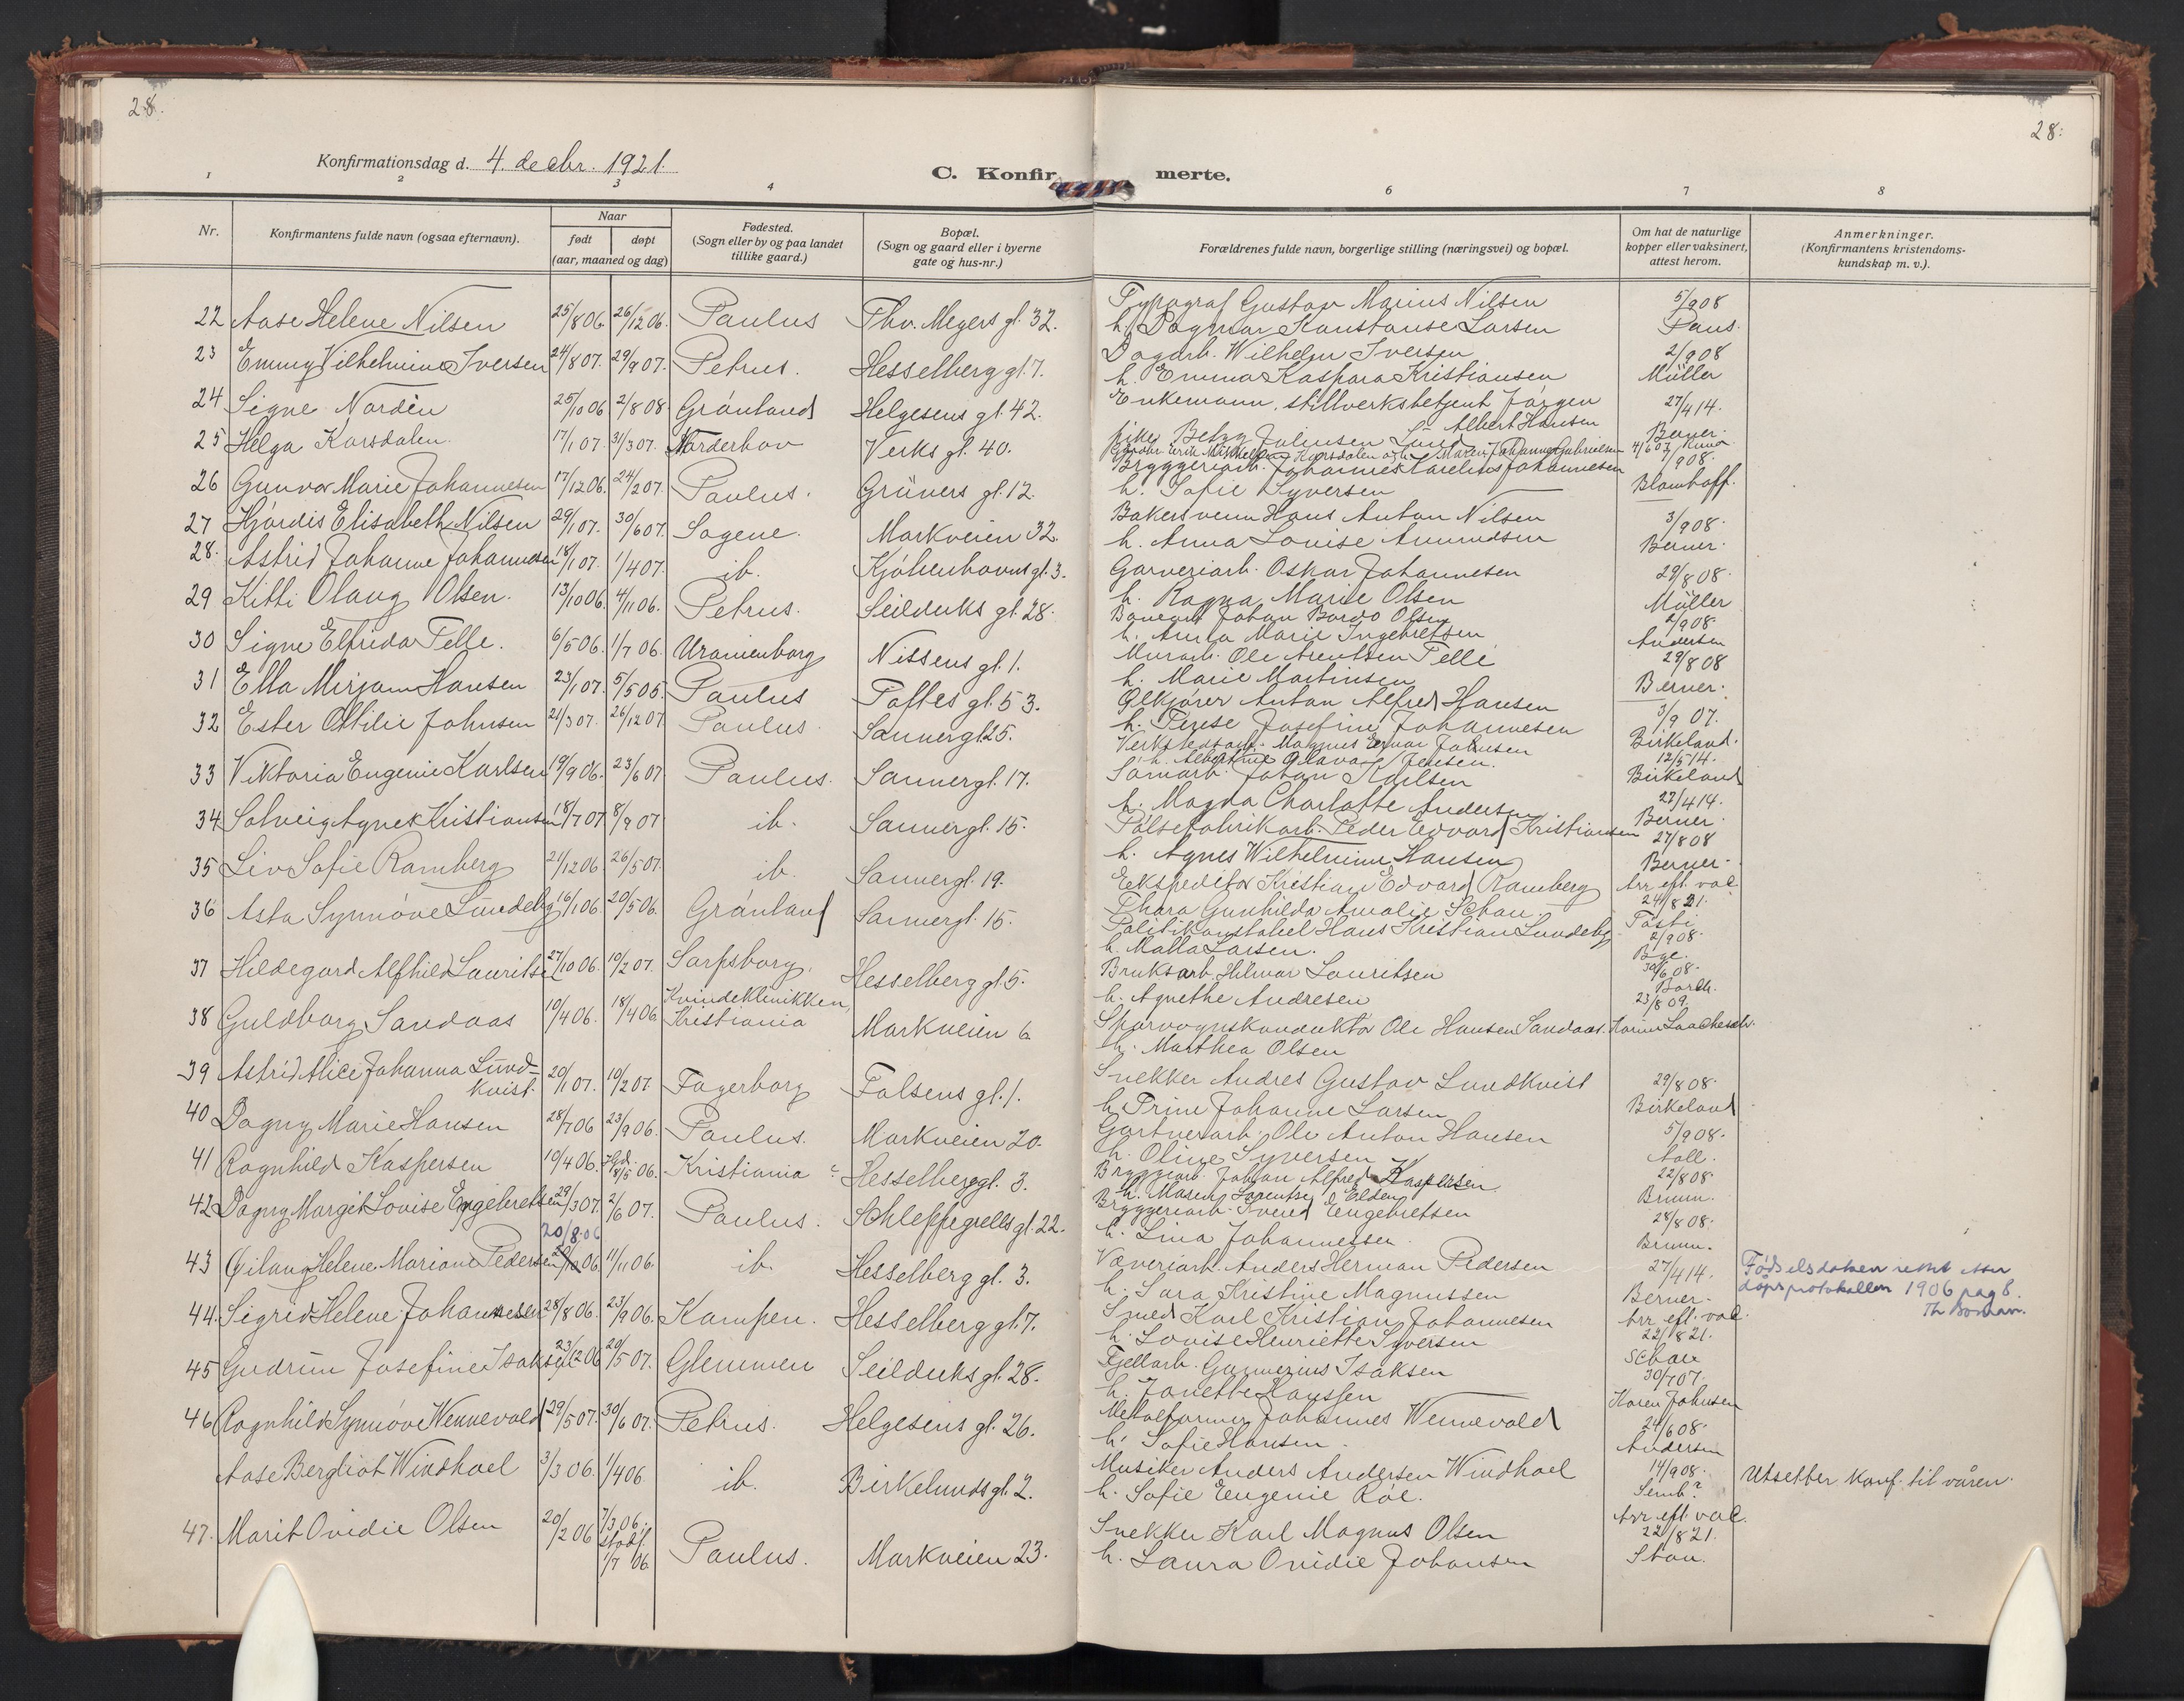 28.
28.
Konfirmationsdag d. 4. decbr. 1921.
C. Konfirmerte.
1 2 3 4 6 7 8
Nr.
Konfirmantens fulde navn (ogsaa efternavn).
Naar
født
døpt
(aar, maaned og dag)
Fødested.
(Sogn eller by og paa landet
tillike gaard.)
Bopæl.
(Sogn og gaard eller i byerne
gate og hus-nr.)
Forældrenes fulde navn, borgerlige stilling (næringsvei) og bopæl.
Om hat de naturlige
kopper eller vaksinert,
attest herom.
Anmerkninger.
(Konfirmantens kristendoms-
kundskap m. v.).
22 Aase Helene Nilsen 25/8 06. 26/12 06. Paulus Thv. Meyers gt. 32. Typograf Gustav Marius Nilsen 5/9 08
h. Dagmar Konstanse Larsen Paus.
23 Emmy Vilhelmine Iversen 24/8 07. 29/9 07. Petrus. Hesselberg gt. 7. Dagarb. Wilhelm Iversen 2/9 08
h. Emma Kaspara Kristiansen Müller
24 Signe Nordèn 25/10 06 2/8 08 Grönland Helgesens gt. 42. Enkemann, stillverksbetjent Jørgen 27/4 14.
Albert Hansen
pike Betzy Julinsen Lund Berner.
25 Helga Korsdalen. 17/1 07. 31/3 07. Norderhov Verks gt. 40. Korsdalen Maren Johanne Gabrielsen 4/6 07
26 Gunvor Marie Johannesen 17/12 06. 24/2 07. Paulus. Grüners gt. 12. Bryggeriarb. Johannes Johannesen /9 08.
h. Sofie Syversen Blomhoff.
27 Hjördis Elisabeth Nilsen 29/1 07. 30/6 07. Sagene. Markveien 32. Bakersvenn Hans Anton Nilsen 3/9 08.
h. Anna Louise Amundsen Berner.
28. Astrid Johanne Johannesen 18/1 07. 1/4 07. ib. Kjöbenhavns gt. 3. Garveriarb. Oskar Johannesen 29/8 08.
h. Ragna Marie Olsen Müller
29 Kitti Olaug Olsen. 13/10 06. 4/11 06. Petrus. Seilduks gt. 28. Johan Olsen 2/9 08
h. Anna Marie Ingebretsen Andersen
30 Signe Elfrida Telle. 6/5 06. 1/7 06. Uranienborg Nissens gt. 1. Murarb. Ole Arentsen Telle 29/8 08
h. Marie Martinsen Berner.
31 Ella Mirjam Hansen 23/1 07. 5/5 06. Paulus Toftes gt. 53. Ölkjører Anton Alfred Hansen 3/9 07.
h. Terese Josefine Johannesen Birkeland.
32 Ester Ottilie Johnsen 21/3 07. 26/12 07 Paulus Sannergt 25. Verkstedsarb. Magnus Johnsen 12/5 14.
h. Albertine Olava Jensen. Birkeland
33 Viktoria Eugenie Karlsen 19/9 06. 23/6 07 Paulus. Sannergt. 17. Johan Karlsen 27/4 14.
h. Magda Charlotte Andersen Berner.
34 Solveig Agnes Kristiansen 18/7 07 8/9 07 ib. Sannergt. 15. Pölsefabrikarb. Peder Edvard Kristiansen 27/8 08
h. Agnes Wilhelmine Hansen Berner.
35 Liv Sofie Ramberg 21/12 06 26/5 07. ib. Sannergt. 19. Ekspeditør Kristian Edvard Ramberg Arr eft. vac.
Thora Gunhilda Amalie Schau. 24/8 21.
36 Asta Synnöve Lundeby 16/1 06. 20/5 06. Grönland Sannergt. 15. Politikonstabel Hans Kristian Lundeby 2/9 08.
h. Malla Larsen. Bye.
37 Hildegard Alfhild Lauritsen 27/10 06. 10/2 07. Sarpsborg. Hesselberg gt. 5. Bruksarb. Hilmar Lauritsen 30/6 08.
h. Agnethe Andresen
38 Guldborg Sandaas 10/4 06. 18/4 06. Kvindeklinikken, Kristiania Markveien 6. Sporvognskonduktör Ole Hansen Sandaas. 23/8 09.
h. Marthea Olsen
39 Astrid Alice Johanna Lund-
kvist. 20/1 07. 10/2 07 Fagerborg Falsens gt. 1. Snekker Andres Gustav Lundkvist 29/8 08.
h. Trine Johanne Larsen Birkeland
40 Dagny Marie Hansen 28/7 06 23/9 06. Paulus. Markveien 20. Gartnerarb. Ole Anton Hansen 5/9 08.
h. Oline Syversen Aall.
41 Ragnhild Kaspersen 10/4 06. Hjd. 18/5 06. Kristiania Hesselberggt. 3. Bryggriarb. Johan Alfred Kaspersen 22/8 08.
h. Maren Lorentse Elden Bruun.
42 Dagny Margit Lovise Engebretsen 29/3 07. 2/6 07. Paulus. Schleppegrells gt. 22. Bryggeriarb. Engebretsen 28/8 08.
h. Lina Johannessen. Bruun.
20/8.06
43 Helene Mariane Pedersen /10 06 11/11 06. ib. Hesselberg gt. 3. Væveriarb. Anders Herman Pedersen 27/4 14. Födselsdatoen rettet etter
h. Sara Kristine Magnussen Berner. döpsprotokollen 1906 pag 8.
44. Sigrid Helene Johannesen 28/8 06. 23/9 06. Kampen. Hesselberg gt. 7. Smed Karl Kristian Johannesen Arr. eft. vac.
h. Louise Henriette Syversen 22/8 21.
45 Gudrun Josefine Isaksen 23/12 06 20/5 07. Glemmen Seilduks gt. 28. Fjellarb. Gunnerius Isaksen Schau 30/7 07.
h. Janette Hanssen Karen Johnsen
46 Ragnhild Synnöve Wennevold 29/5 07. 30/6 07. Petrus. Helgesens gt. 26. Metalformer Johannes Wennevold 24/6 08.
h. Sofie Hansen. Andersen
Aase Bergliot Windhoel 3/3 06. 1/4 06 ib. Birkelunds gt. 2. Musiker Anders Andersen Windhoel 14/9 08. Utsetter konf. til våren.
h. Sofie Eugenie Röe. Semb?
47. Marit Ovidie Olsen 20/2 06 7/3 06. stadf. 1/7 06 Paulus. Markveien 23. Snekker Karl Magnus Olsen Arr eft. vac. 22/8 21.
h. Laura Ovidie Johansen